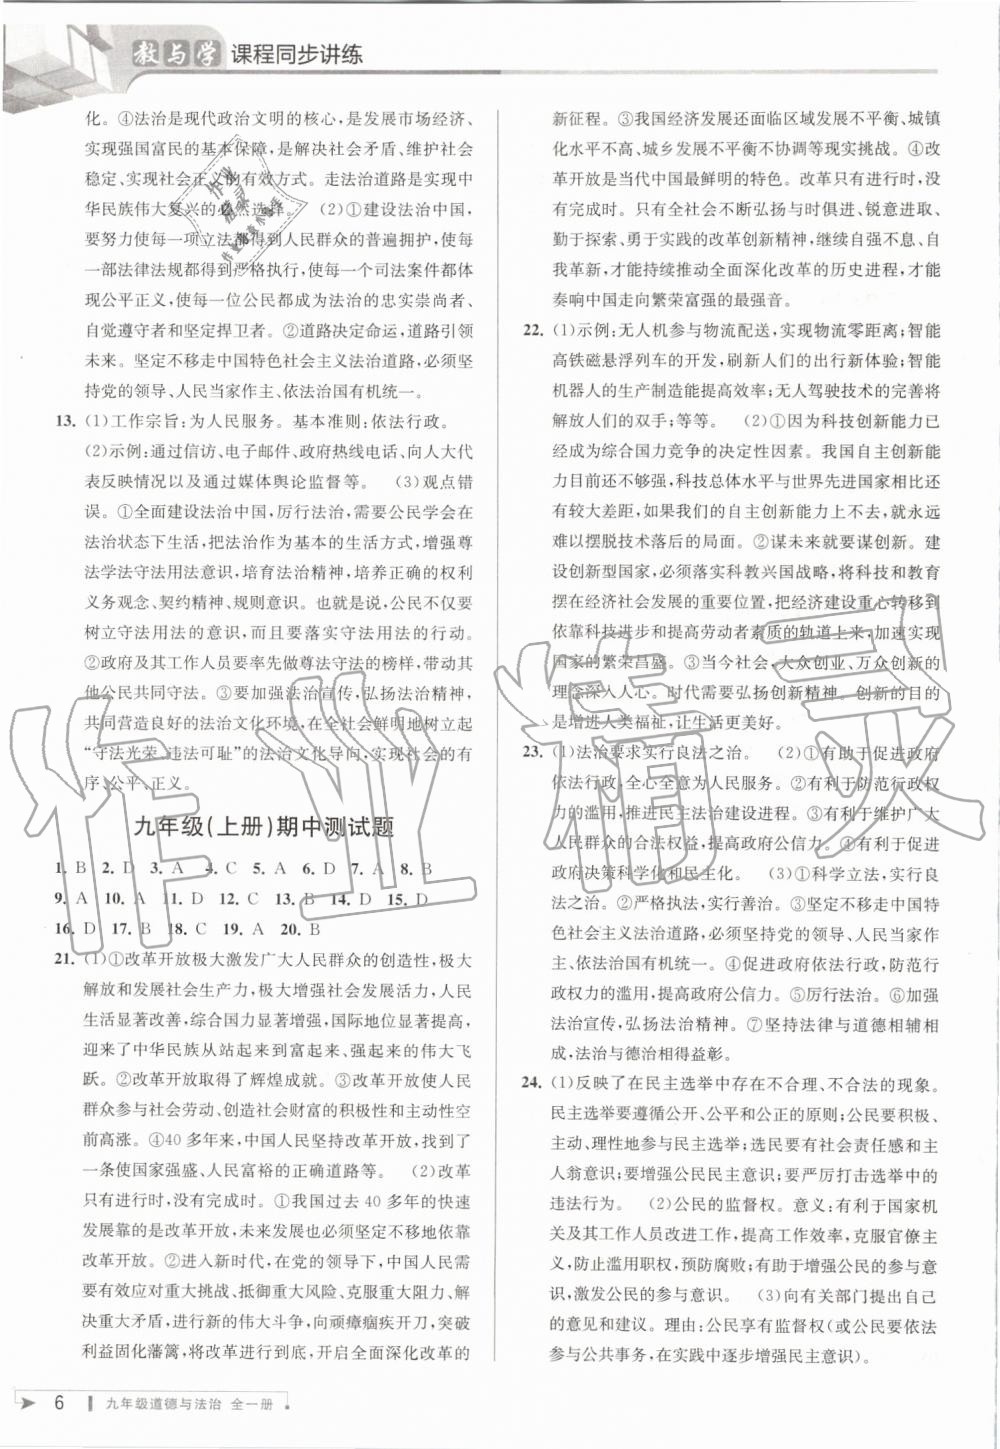 教与学 课程同步讲练
化。④法治是现代政治文明的核心,是发展市场经济、
实现强国富民的基本保障,是解决社会矛盾、维护社会
稳定、实现社会正义的有效方式。走法治道路是实现中
华民族伟大复兴的必然选择。 (2)①建设法治中国,
要努力使每一项立法都得到人民群众的普遍拥护,使每
一部法律法规都得到严格执行,使每一个司法案件都体
现公平正义,使每一位公民都成为法治的忠实崇尚者、
自觉遵守者和坚定捍卫者。②道路决定命运,道路引领
未来。坚定不移走中国特色社会主义法治道路,必须坚
持党的领导、人民当家作主、依法治国有机统一。
13. (1)工作宗旨:为人民服务。基本准则:依法行政。
(2)示例:通过信访、电子邮件、政府热线电话、向人大代
表反映情况以及通过媒体舆论监督等。 (3)观点错
误。①全面建设法治中国,厉行法治,需要公民学会在
法治状态下生活,把法治作为基本的生活方式,增强尊
法学法守法用法意识,培育法治精神,培养正确的权利
义务观念、契约精神、规则意识。也就是说,公民不仅要
树立守法用法的意识,而且要落实守法用法的行动。
②政府及其工作人员要率先做尊法守法的榜样,带动其
他公民共同守法。③要加强法治宣传,弘扬法治精神,
共同营造良好的法治文化环境,在全社会鲜明地树立起
“守法光荣、违法可耻”的法治文化导向,实现社会的有
序、公平、正义。
九年级(上册)期中测试题
1. B 2. D 3. A 4. C 5. A 6. D 7. A 8. B
9. A 10. A 11. D 12. C 13. B 14. D 15. D
16. D 17. B 18. C 19. A 20. B
21. (1)①改革开放极大激发广大人民群众的创造性,极大
解放和发展社会生产力,极大增强社会发展活力,人民
生活显著改善,综合国力显著增强,国际地位显著提高,
迎来了中华民族从站起来到富起来、强起来的伟大飞
跃。②改革开放取得了辉煌成就。③改革开放使人民
群众参与社会劳动、创造社会财富的积极性和主动性空
前高涨。④40多年来,中国人民坚持改革开放,找到了
一条使国家强盛、人民富裕的正确道路等。 (2)改革
只有进行时,没有完成时。①我国过去40多年的快速
发展靠的是改革开放,未来发展也必须坚定不移地依靠
改革开放。②进入新时代,在党的领导下,中国人民需
要有效应对重大挑战、抵御重大风险、克服重大阻力、解
决重大矛盾,进行新的伟大斗争,向顽瘴痼疾开刀,突破
利益固化藩篱,将改革进行到底,开启全面深化改革的
新征程。③我国经济发展还面临区域发展不平衡、城镇
化水平不高、城乡发展不平衡不协调等现实挑战。④改
革开放是当代中国最鲜明的特色。改革只有进行时,没
有完成时。只有全社会不断弘扬与时俱进、锐意进取、
勤于探索、勇于实践的改革创新精神,继续自强不息、自
我革新,才能持续推动全面深化改革的历史进程,才能
奏响中国走向繁荣富强的最强音。
22. (1)示例:无人机参与物流配送,实现物流零距离;智能
高铁磁悬浮列车的开发,刷新人们的出行新体验;智能
机器人的生产制造能提高效率;无人驾驶技术的完善将
解放人们的双手;等等。 (2)①因为科技创新能力已
经成为综合国力竞争的决定性因素。我国自主创新能力
目前还不够强,科技总体水平与世界先进国家相比还
有较大差距,如果我们的自主创新能力上不去,就永远
难以摆脱技术落后的局面。②谋未来就要谋创新。建
设创新型国家,必须落实科教兴国战略,将科技和教育
摆在经济社会发展的重要位置,把经济建设重心转移到
依靠科技进步和提高劳动者素质的轨道上来,加速实现
国家的繁荣昌盛。③当今社会,大众创业、万众创新的
理念深入人心。时代需要弘扬创新精神。创新的目的
是增进人类福祉,让生活更美好。
23. (1)法治要求实行良法之治。 (2)①有助于促进政府
依法行政,全心全意为人民服务。②有利于防范行政权
力的滥用,推进民主法治建设进程。③有利于维护广大
人民群众的合法权益,提高政府公信力。④有利于促进
政府决策科学化和民主化。 (3)①科学立法,实行良
法之治。②严格执法,实行善治。③坚定不移走中国特
色社会主义法治道路,必须坚持党的领导、人民当家作
主、依法治国有机统一。④促进政府依法行政,防范行
政权力的滥用,提高政府公信力。⑤厉行法治。⑥加强
法治宣传,弘扬法治精神。⑦坚持法律与道德相辅相
成,法治与德治相得益彰。
24. (1)反映了在民主选举中存在不合理、不合法的现象。
民主选举要遵循公开、公平和公正的原则;公民要积极、
主动、理性地参与民主选举;选民要有社会责任感和主
人翁意识;要增强公民民主意识;要严厉打击选举中的
违法行为。 (2)公民的监督权。意义:有利于国家机
关及其工作人员改进工作,提高工作效率,克服官僚主
义,防止滥用职权,预防腐败;有助于增强公民的参与意
识,激发公民的参与意识。 (3)向有关部门提出自己
的意见和建议。理由:公民享有监督权(或公民要依法
参与公共事务,在实践中逐步增强民主意识)。
6 九年级道德与法治 全一册
作业精灵